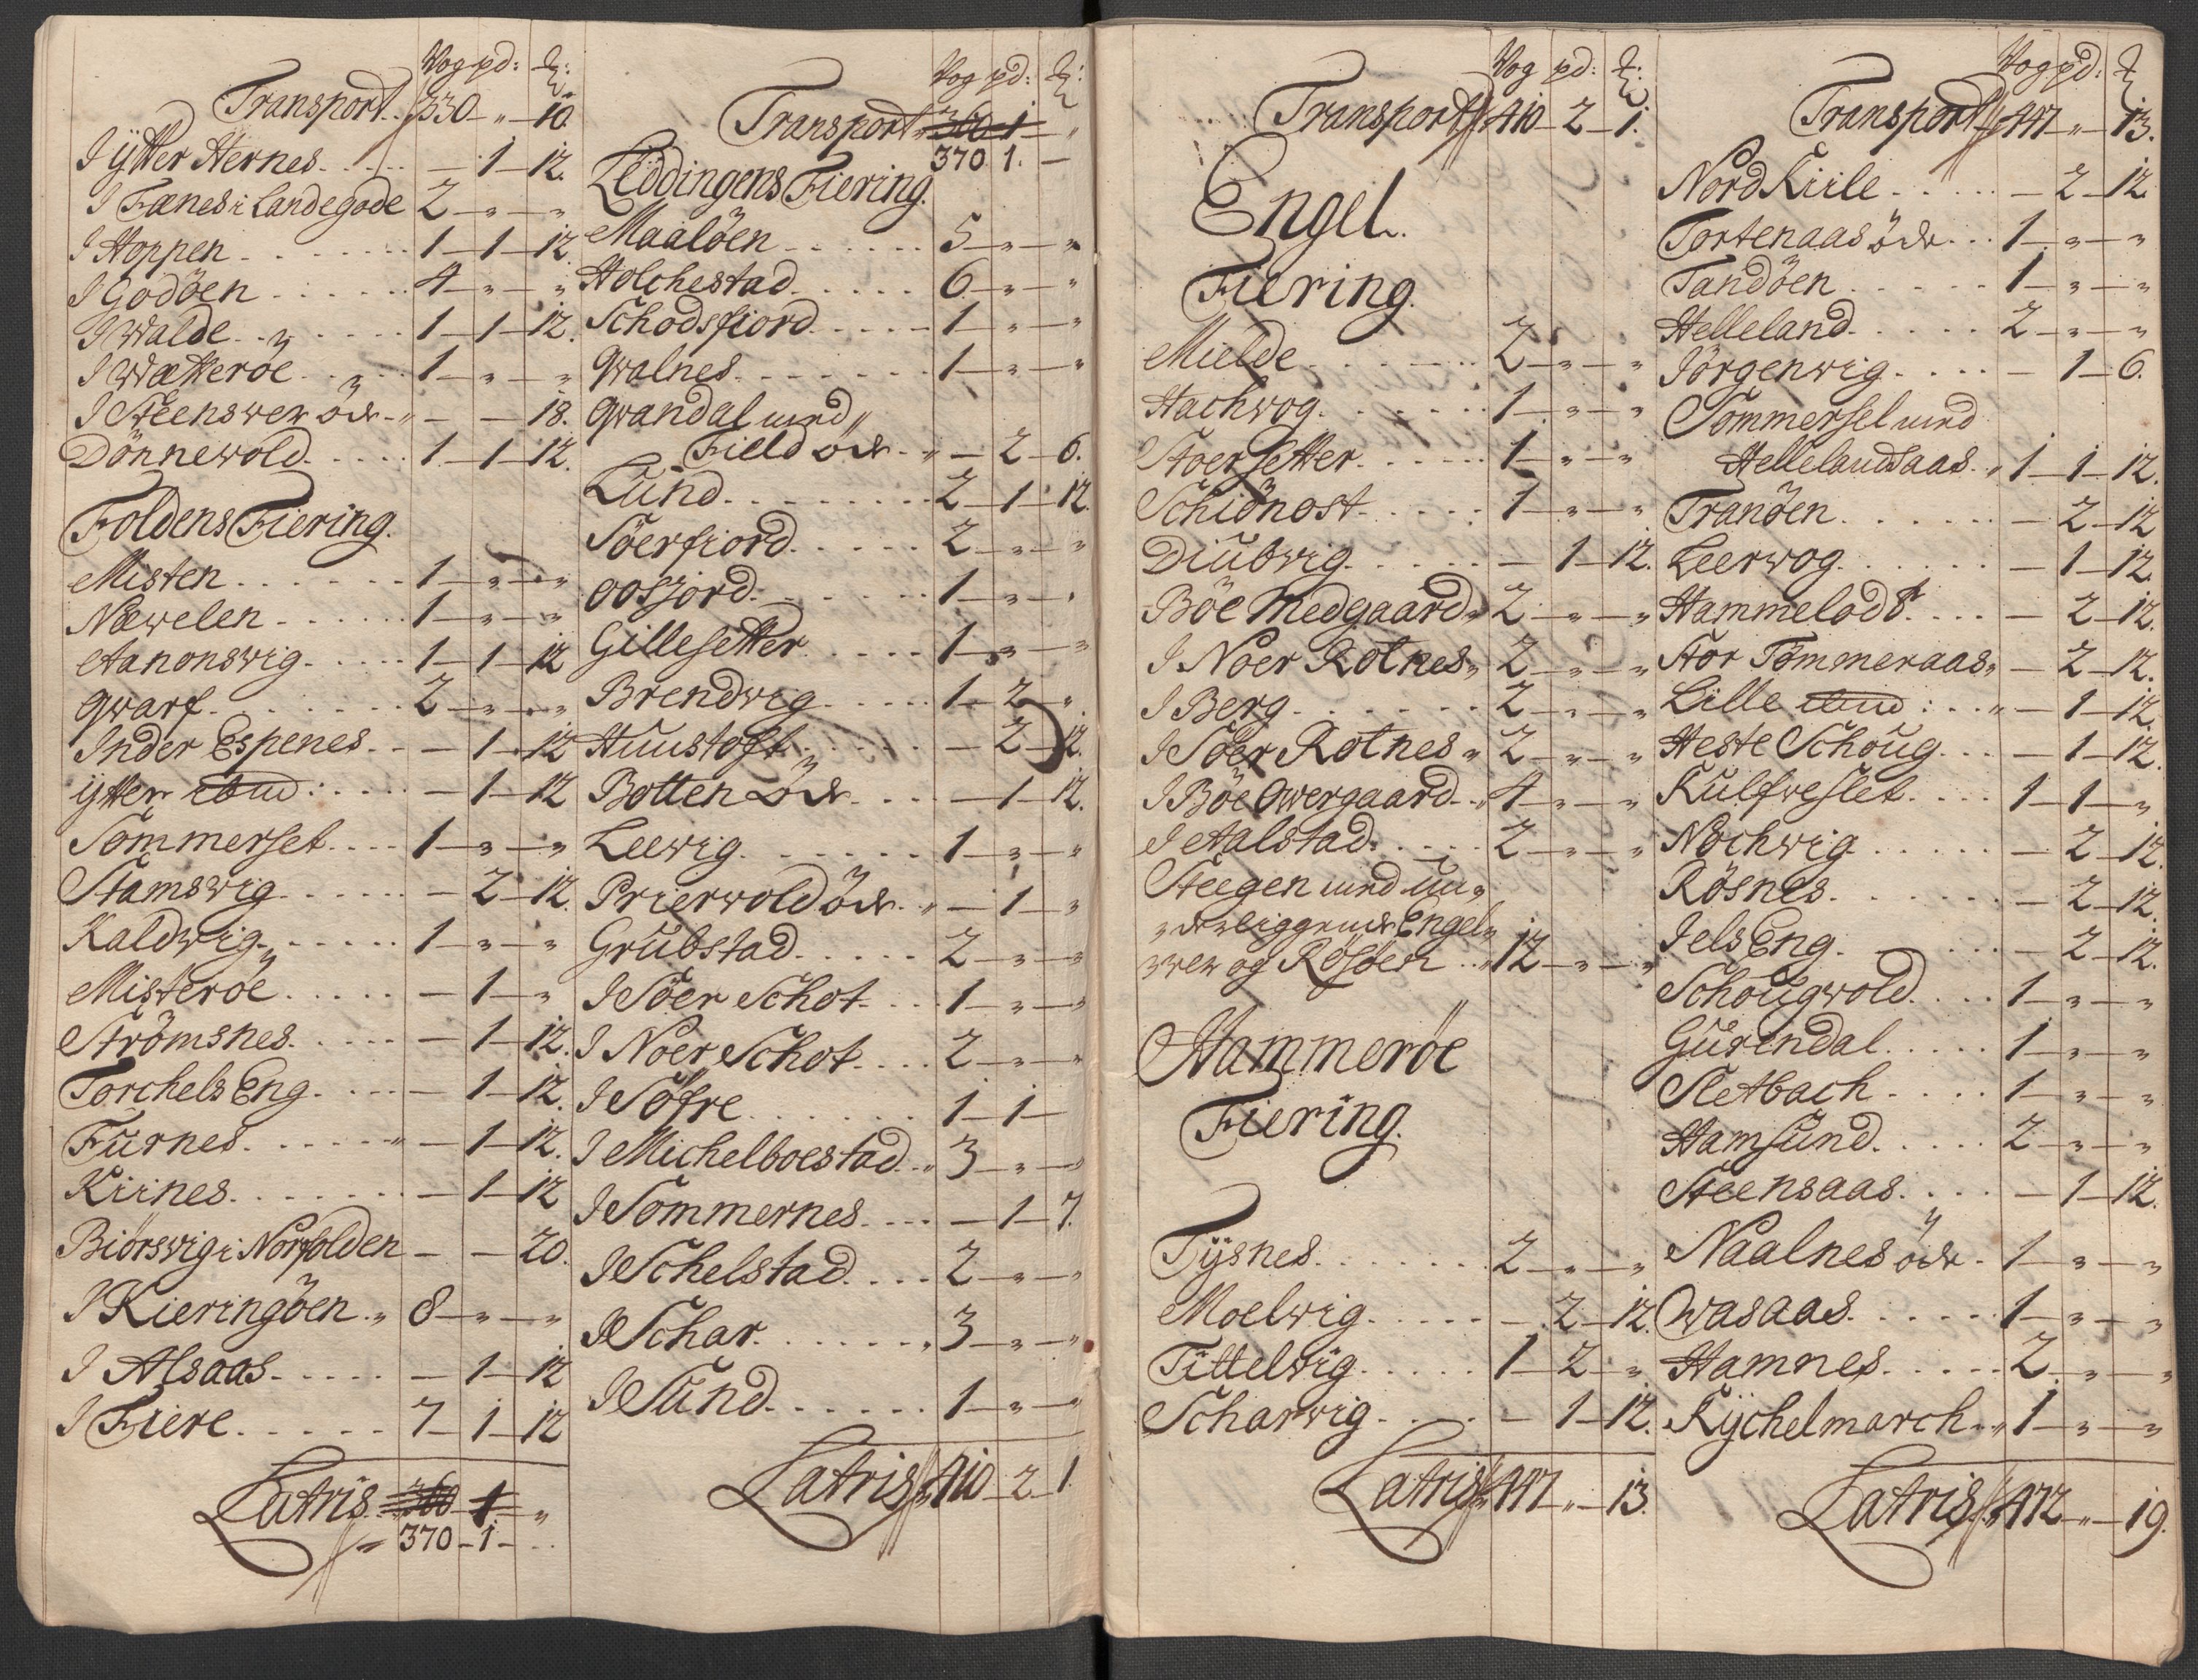 Vog pd: ℔:
Transport 330 „ 10.
I ÿtter Hernes. – 1 – 12.
I Fænes i Landegode 2 – „ – „
I Hoppen 1 – 1 – 12.
I Godöen 4 – „ – „
I Walde 1 – 1 – 12.
I Wætteröe 1 – „ – „
I Steenswer öde – – 18.
Dönnewold 1 – 1 – 12.
Foldens Fiering.
Misten 1 – „ – „
Næwelen 1 – „ – „
Aanonswig 1 – 1 – 12
Qwarf 2 – „ – „
Inder Espenes – 1 – 12
ÿtter ibid: – 1 – 12
Sommerset 1 – „ – „
Stamswig – 2 – 12.
Kaldwig 1 – „ – „
Misteröe – 1 – „
Strömsnes – 1 – 12.
Torchels Eng – 1 – 12.
Furnes – 1 – 12.
Kiines – 1 – 12
Biörswig i Norfolden – – 20.
I Kieringöen 8 – „ – „
I Alsaas – 1 – 12
I Fiere 7 – 1 – 12
Latris 360 1 „
370 – 1 –
Vog pd: ℔:
Transport 360 1 „
370 1. –
Leddingens Fiering.
Maalöen 5 – „ – „
Holchestad 6 – „ – „
Schodsfiord 1 – „ – „
Qwalnes 1 – „ – „
Qwandal med
Field öde – 2 – 6.
Lund 2 – 1 – 12.
Söerfiord 2 – „ – „
Oosjord 1 – „ – „
Gillesetter 1 – „ – „
Brendwig 1 – 2 – „
Huustoft – 2 – 12.
Botten öde – 1 – 12.
Leewig 1 – „ – „
Prierwold öde – 1 – „
Grubstad 2 – „ – „
I Söer Schot 1 – „ – „
I Noer Schot 2 – „ – „
I Söfre 1 – 1 –
I Michelboestad 3 – „ – „
I Sommernes – 1 – 7.
I Schelstad 2 – „ – „
I Schar 3 – „ – „
I Sund 1 – „ – „
Latris 410 – 2 – 1
Vog pd: ℔:
Transport 410 – 2 – 1.
Engel.
Fiering.
Mielde 2 – „ – „
Hachwog 1 – „ – „
Stoersetter 1 – „ – „
Schiönost 1 – „ – „
Diubwig – 1 – 12.
Böe Nedgaard 2 – „ – „
I Noer Rotnes 2 – „ – „
I Berg 2 – „ – „
I Söer Rotnes 2 – „ – „
I Böe Owergaard 4 – „ – „
I Aalstad 2 – „ – „
Steegen med un„
„derliggende Engel„
„wer og Rösöen 12 – „ – „
Hammeröe
Fiering.
Tÿsnes 2 – „ – „
Moelwig – 2 – 12.
Tittelwig 1 – 2 – „
Scharwig – 1 – 12.
Latris 447 „ – 13.
Vog pd: ℔
Transport 447 „ – 13.
Nord Kiile – 2 – 12.
Tortenaas öde 1 – „ – „
Tandöen 1 – „ – „
Helleland 2 – „ – „
Jörgenwig – 1 – 6.
Sommersel med
Hellelandsaas 1 – 1 – 12.
Tranöen – 2 – 12
Leerwog – 1 – 12.
Hammelodt – 2 – 12.
Stor Tömmeraas – 2 – 12.
Lille ibid: – 1 – 12.
Heste Schoug – 1 – 12.
Kulfweslet 1 – 1 – „
Nochwig – 2 – 12.
Rösnes – 2 – 12.
Iels Eng – 2 – 12.
Schougwold 1 – „ – „
Gurendal 1 – „ – „
Sletbach 1 – „ – „
Hamsund 2 – „ – „
Steensaas – 1 – 12.
Naalnes öde 1 – „ – „
Wasaas 1 – „ – „
Hamnes 2 – „ – „
Kÿchelmarch 1 – „ – „
Latris 472 – „ – 19.